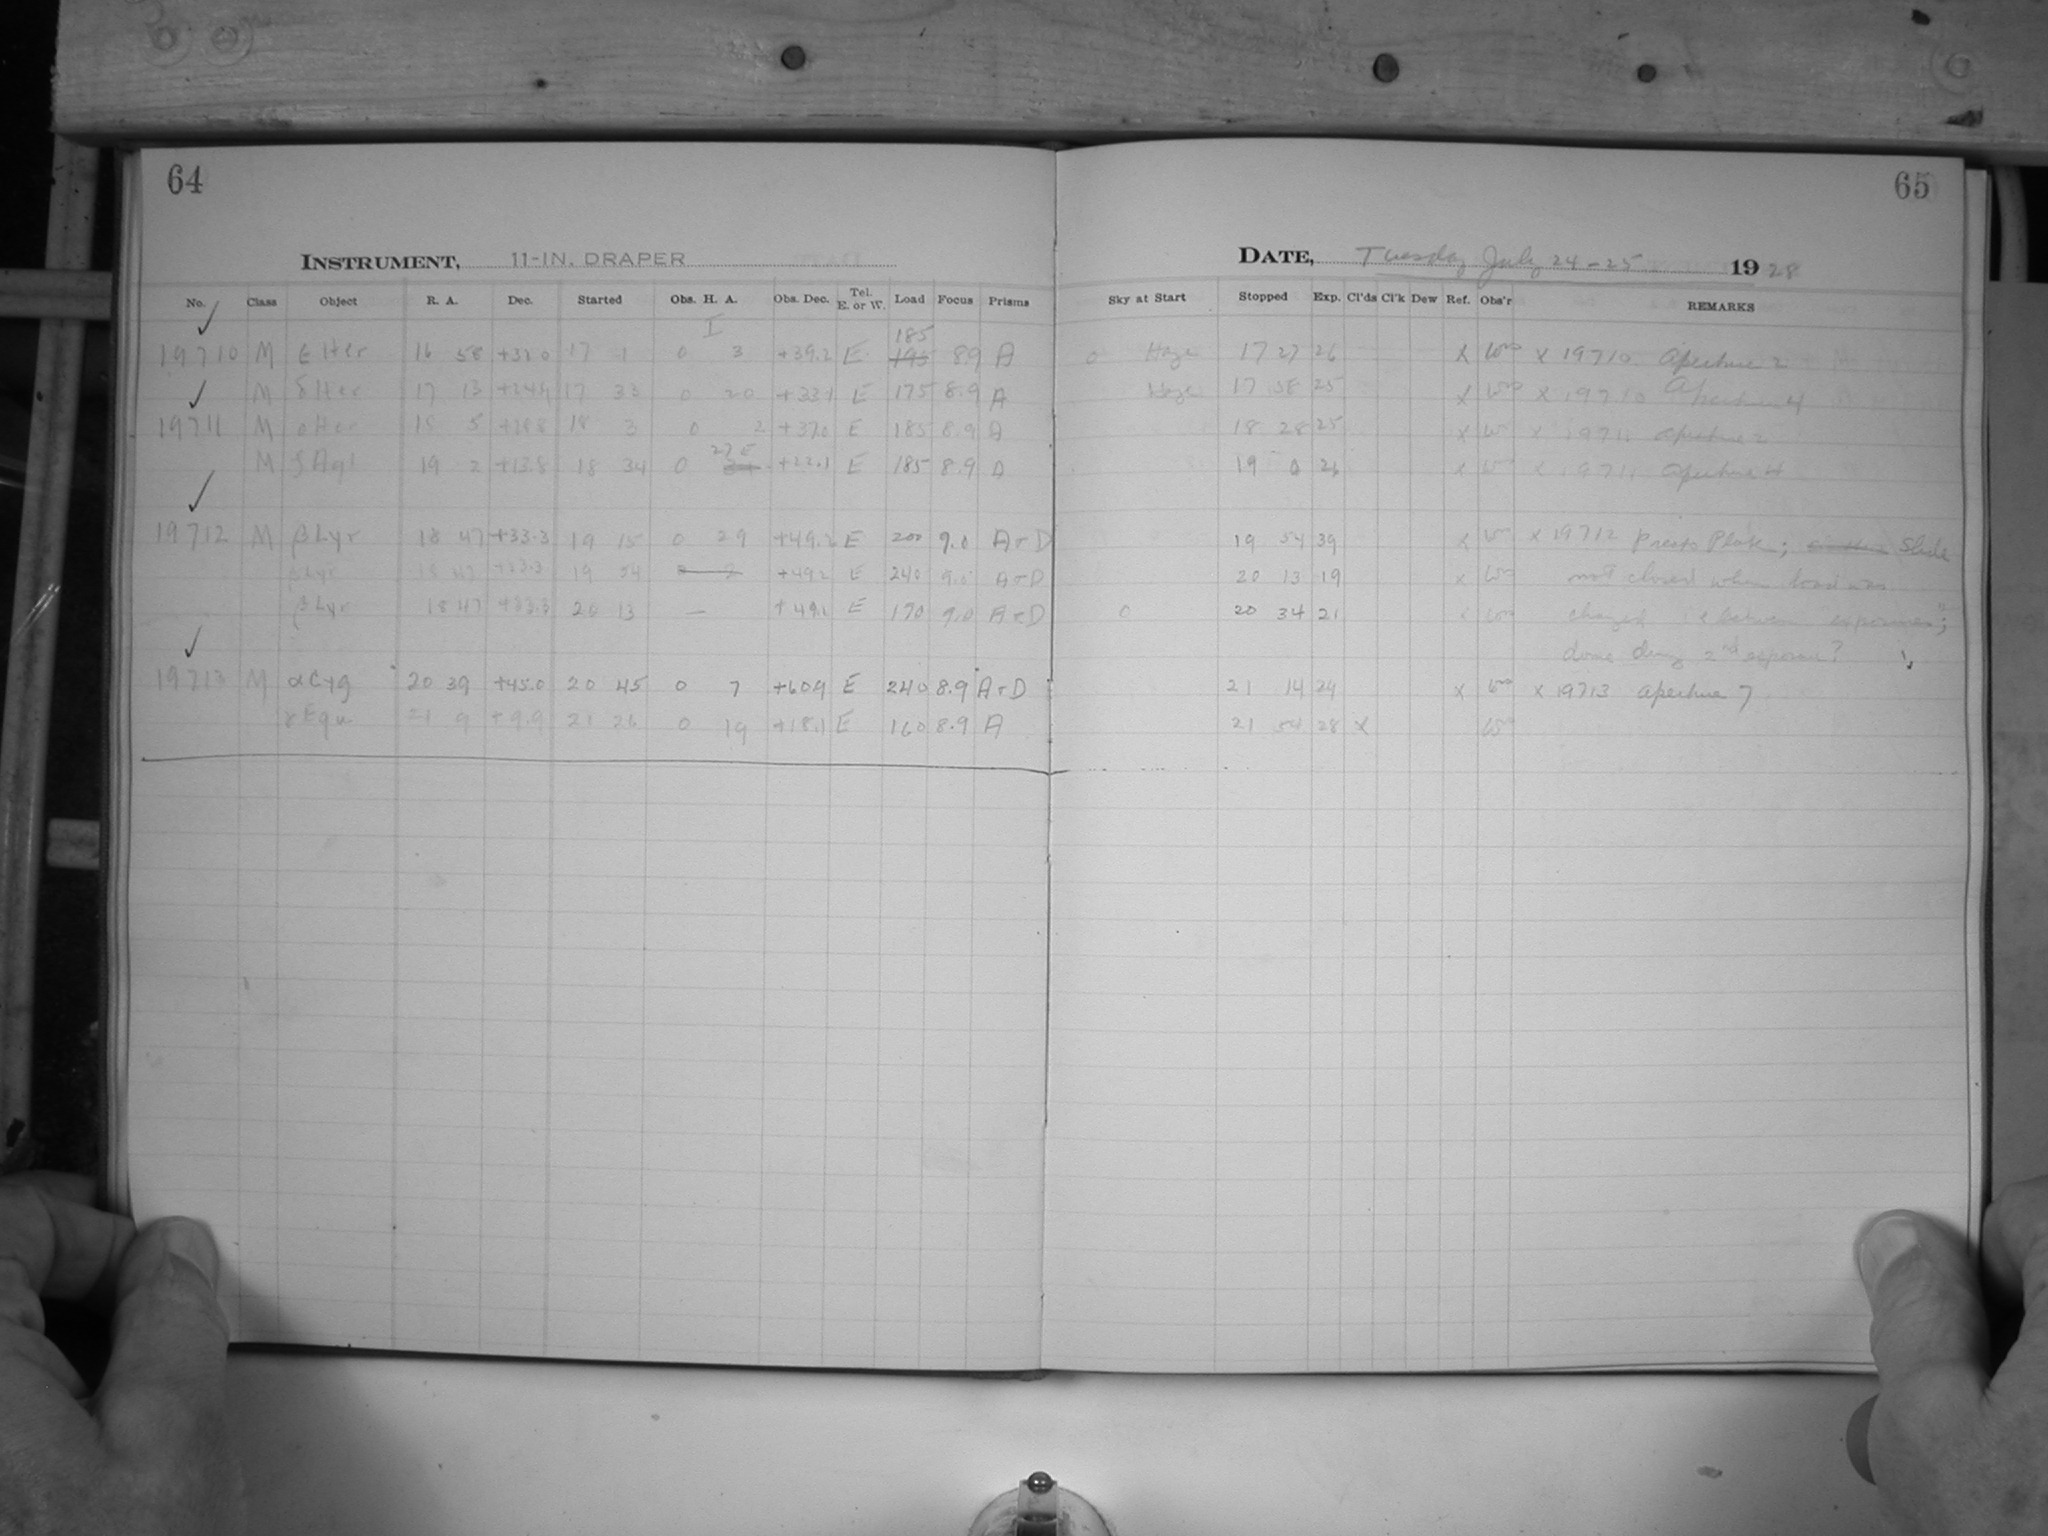 64
65
INSTRUMENT, 11-IN. DRAPER
DATE, Tuesday July 24-25 1928
No. Class Object R. A. Dec. Started Obs. H. A. Obs. Dec. Tel. E. or W. Load Focus Prisms Sky at Start Stopped Exp. Cl'ds Cl'k Dew Ref. Obs'r REMARKS
I 185
19710 M ε Her 16 58 +31.0 17 1 0 3 +39.2 E 195 89 A 0 Haze 17 27 26 x x 19710 Aperture 2
M δ Her 17 13 17 33 0 20 +33.1 E 175 8.9 A Haze 17 58 25 x x 19710 Aperture 4
19711 M o Her 18 5 +28.8 18 3 0 2 +37.0 E 185 8.9 A 18 28 25 x x 19711 Aperture 2
M ζ Aql 19 2 +13.8 18 34 0 +22.1 E 185 8.9 A 19 0 26 x x 19711 Aperture 4
19712 M β Lyr 18 47 +33.3 19 15 0 29 +49.2 E 200 9.0 A+D 19 54 39 x x 19712 Presto Plate; Slide
β Lyr 18 47 +33.3 19 54 +49.2 E 240 9.0 A+D 20 13 19 x not closed when load was
β Lyr 18 47 +33.3 20 13 — +49.1 E 170 9.0 A+D 0 20 34 21 x changed between exposures;
dome during 2nd exposure?
19713 M α Cyg 20 39 +45.0 20 45 0 7 +60.9 E 240 8.9 A+D 21 14 29 x x 19713 aperture 7
γ Equ 21 9 +9.9 21 26 0 19 +18.1 E 160 8.9 A 21 54 28 x